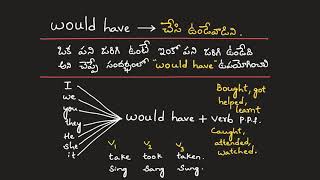 would have → చేసి ఉండేవాడిని.
ఒక పని జరిగి ఉంటే ఇంకో పని జరిగి ఉండేది
అని చెప్పే సందర్భంలో "would have" ఉపయోగించాలి
I
we
you
they
He
she
it
would have + verb P.P.f.
Bought, got
helped,
learnt
Caught,
attended,
watched.
V1 V2 V3
take took taken.
Sing Sang Sung.